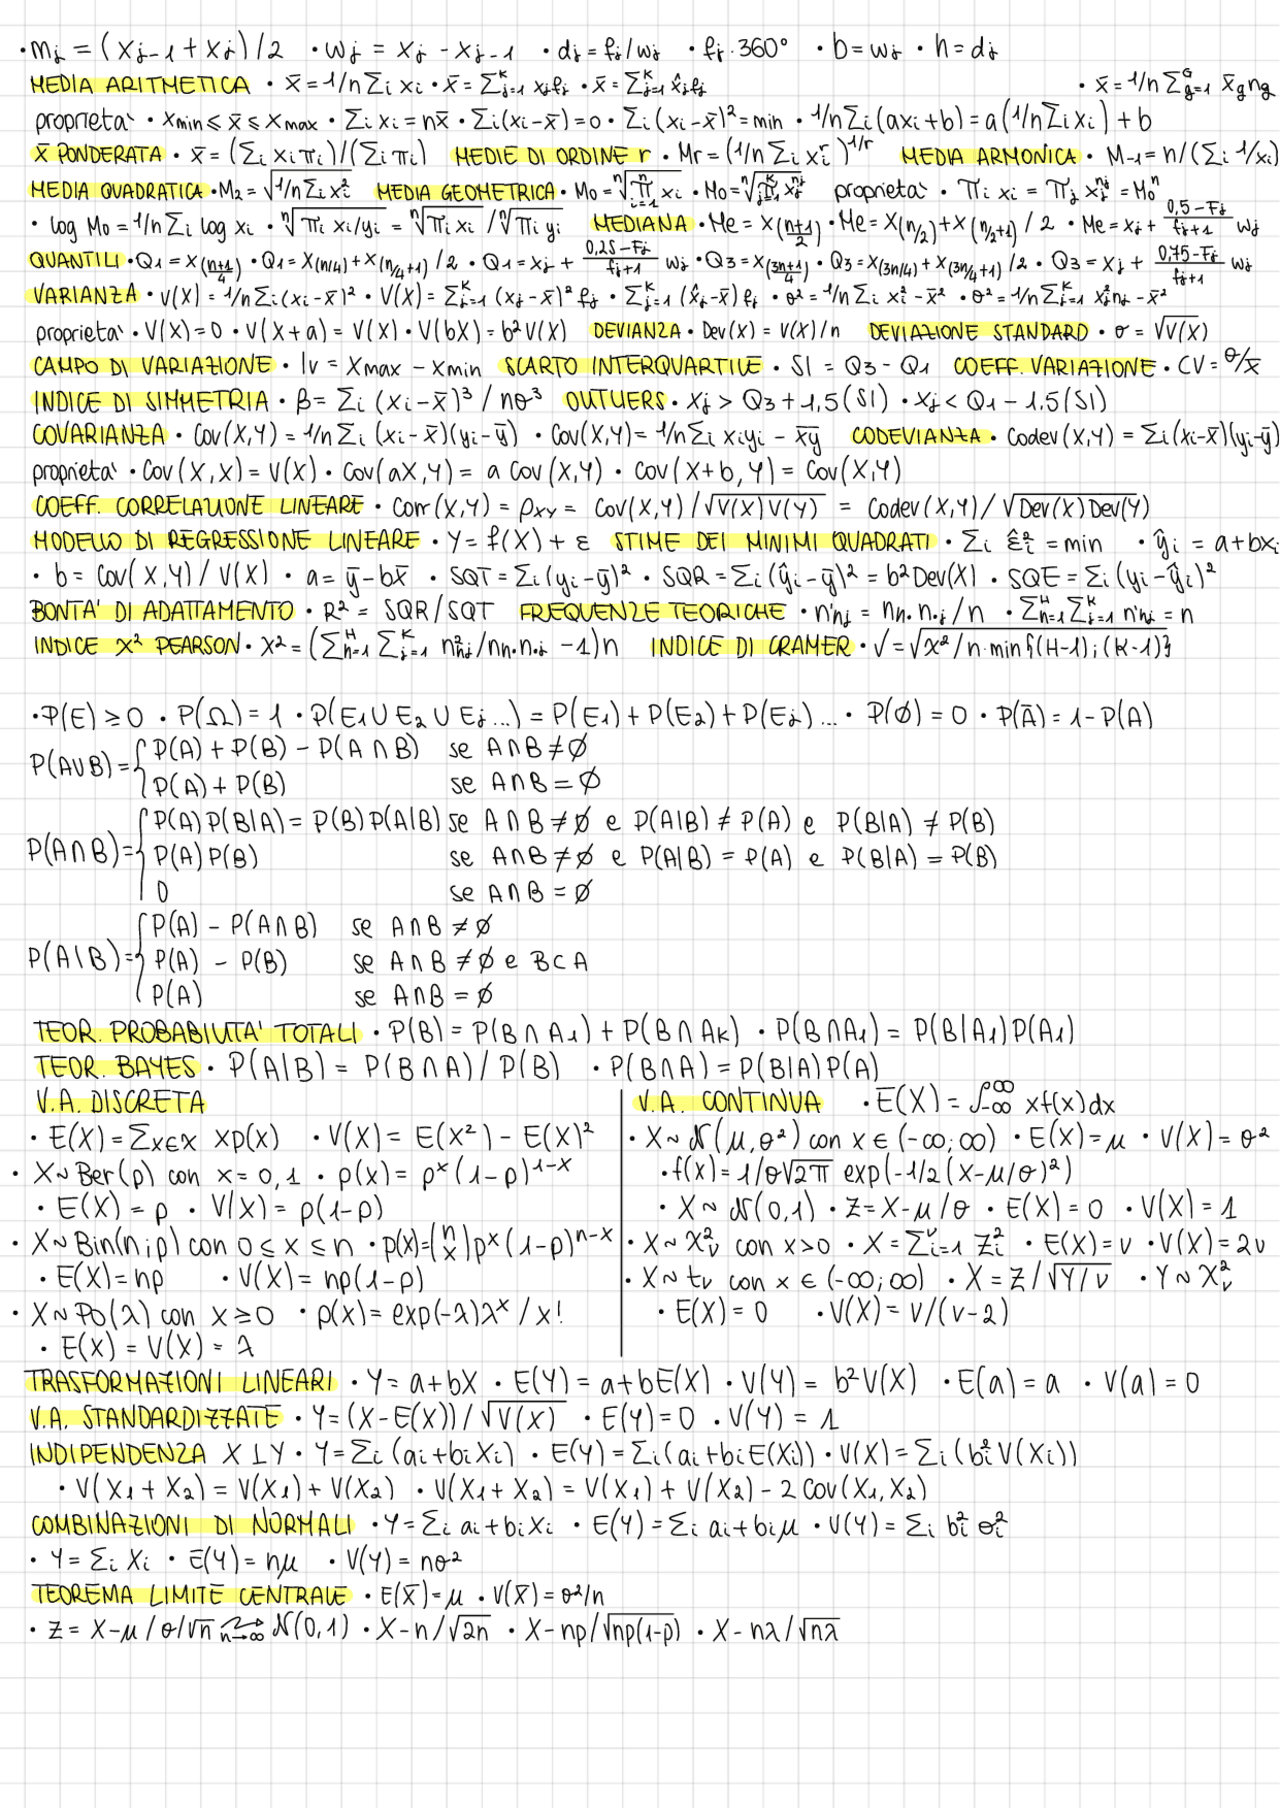 · mⱼ = (xⱼ₋₁ + xⱼ)/2 · wⱼ = xⱼ - xⱼ₋₁ · dⱼ = fⱼ/wⱼ · fⱼ·360° · b = wⱼ · h = dⱼ
MEDIA ARITMETICA · x̄ = 1/n Σᵢ xᵢ · x̄ = Σᴷⱼ₌₁ xⱼfⱼ · x̄ = Σᴷⱼ₌₁ x̂ⱼfⱼ · x̄ = 1/n Σᴳg₌₁ x̄g ng
proprieta' · xmin ≤ x̄ ≤ xmax · Σᵢ xᵢ = nx̄ · Σᵢ(xᵢ-x̄) = 0 · Σᵢ(xᵢ-x̄)² = min · 1/n Σᵢ(axᵢ+b) = a(1/n Σᵢ xᵢ) + b
x̄ PONDERATA · x̄ = (Σᵢ xᵢπᵢ)/(Σᵢ πᵢ) MEDIE DI ORDINE r · Mr = (1/n Σᵢ xᵢʳ)^1/r MEDIA ARMONICA · M₋₁ = n/(Σᵢ 1/xᵢ)
MEDIA QUADRATICA · M₂ = √(1/n Σᵢ xᵢ²) MEDIA GEOMETRICA · M₀ = ⁿ√(∏ⁿᵢ₌₁ xᵢ) · M₀ = ⁿ√(∏ᴷⱼ₌₁ xⱼ^nⱼ) proprieta' · πᵢ xᵢ = πⱼ xⱼ^nⱼ = M₀ⁿ
· log M₀ = 1/n Σᵢ log xᵢ · ⁿ√(πᵢ xᵢ/yᵢ) = ⁿ√(πᵢ xᵢ) / ⁿ√(πᵢ yᵢ) MEDIANA · Me = x((n+1)/2) · Me = x(n/2) + x(n/2+1) / 2 · Me = xⱼ + (0,5-Fⱼ)/(fⱼ+1) wⱼ
QUANTILI · Q₁ = x((n+1)/4) · Q₁ = x(n/4) + x(n/4+1) /2 · Q₁ = xⱼ + (0,25-Fⱼ)/(fⱼ+1) wⱼ · Q₃ = x((3n+1)/4) · Q₃ = x(3n/4) + x(3n/4+1) /2 · Q₃ = xⱼ + (0,75-Fⱼ)/(fⱼ+1) wⱼ
VARIANZA · V(X) = 1/n Σᵢ(xᵢ-x̄)² · V(X) = Σᴷⱼ₌₁ (xⱼ-x̄)² fⱼ · Σᴷⱼ₌₁ (x̂ⱼ-x̄) fⱼ · σ² = 1/n Σᵢ xᵢ² - x̄² · σ² = 1/n Σᴷⱼ₌₁ xⱼ²nⱼ - x̄²
proprieta' · V(X) = 0 · V(X+a) = V(X) · V(bX) = b²V(X) DEVIANZA · Dev(X) = V(X)/n DEVIAZIONE STANDARD · σ = √V(X)
CAMPO DI VARIAZIONE · Iv = xmax - xmin SCARTO INTERQUARTILE · SI = Q₃ - Q₁ COEFF. VARIAZIONE · CV = σ/x̄
INDICE DI SIMMETRIA · β = Σᵢ (xᵢ-x̄)³ / nσ³ OUTLIERS · xⱼ > Q₃ + 1,5(SI) · xⱼ < Q₁ - 1.5(SI)
COVARIANZA · Cov(X,Y) = 1/n Σᵢ (xᵢ-x̄)(yᵢ-ȳ) · Cov(X,Y) = 1/n Σᵢ xᵢyᵢ - x̄ȳ CODEVIANZA · Codev(X,Y) = Σᵢ(xᵢ-x̄)(yᵢ-ȳ)
proprieta' · Cov(X,X) = V(X) · Cov(aX,Y) = a Cov(X,Y) · Cov(X+b,Y) = Cov(X,Y)
COEFF. CORRELAZIONE LINEARE · Corr(X,Y) = ρxy = Cov(X,Y)/√(V(X)V(Y)) = Codev(X,Y)/√(Dev(X)Dev(Y))
MODELLO DI REGRESSIONE LINEARE · Y = f(X) + ε STIME DEI MINIMI QUADRATI · Σᵢ ε̂ᵢ² = min · ŷᵢ = a+bxᵢ
· b = Cov(X,Y)/V(X) · a = ȳ-bx̄ · SQT = Σᵢ(yᵢ-ȳ)² · SQR = Σᵢ(ŷᵢ-ȳ)² = b²Dev(X) · SQE = Σᵢ(yᵢ-ŷᵢ)²
BONTA' DI ADATTAMENTO · R² = SQR/SQT FREQUENZE TEORICHE · n'hj = nh.n.j/n · Σᴴh₌₁ Σᴷⱼ₌₁ n'hj = n
INDICE X² PEARSON · X² = (Σᴴh₌₁ Σᴷⱼ₌₁ n²hj/nh.n.j -1)n INDICE DI CRAMER · V = √(X²/n·min{(H-1);(K-1)})
· P(E) ≥ 0 · P(Ω) = 1 · P(E₁∪E₂∪Eⱼ...) = P(E₁) + P(E₂) + P(Eⱼ)... · P(∅) = 0 · P(Ā) = 1-P(A)
P(A∪B) = { P(A) + P(B) - P(A∩B) se A∩B ≠ ∅
P(A) + P(B) se A∩B = ∅
P(A)P(B|A) = P(B)P(A|B) se A∩B ≠ ∅ e P(A|B) ≠ P(A) e P(B|A) ≠ P(B)
P(A∩B) = { P(A)P(B) se A∩B ≠ ∅ e P(A|B) = P(A) e P(B|A) = P(B)
0 se A∩B = ∅
P(A) - P(A∩B) se A∩B ≠ ∅
P(A\B) = { P(A) - P(B) se A∩B ≠ ∅ e B⊂A
P(A) se A∩B = ∅
TEOR. PROBABILITA' TOTALI · P(B) = P(B∩A₁) + P(B∩Aₖ) · P(B∩A₁) = P(B|A₁)P(A₁)
TEOR. BAYES · P(A|B) = P(B∩A)/P(B) · P(B∩A) = P(B|A)P(A)
V.A. DISCRETA
· E(X) = Σx∈x xp(x) · V(X) = E(X²) - E(X)²
· X~Ber(p) con x = 0,1 · p(x) = pˣ(1-p)¹⁻ˣ
· E(X) = p · V(X) = p(1-p)
· X~Bin(n;p) con 0≤x≤n · p(x) = (n x)pˣ(1-p)ⁿ⁻ˣ
· E(X) = np · V(X) = np(1-p)
· X~Po(λ) con x≥0 · p(x) = exp(-λ)λˣ/x!
· E(X) = V(X) = λ
V.A. CONTINUA · E(X) = ∫₋∞^∞ xf(x)dx
· X~N(μ,σ²) con x∈(-∞;∞) · E(X) = μ · V(X) = σ²
· f(x) = 1/σ√2π exp(-1/2(X-μ/σ)²)
· X~N(0,1) · Z = X-μ/σ · E(X) = 0 · V(X) = 1
· X~X²ν con x>0 · X = Σᵛᵢ₌₁ Zᵢ² · E(X) = ν · V(X) = 2ν
· X~tν con x∈(-∞;∞) · X = Z/√(Y/ν) · Y~X²ν
· E(X) = 0 · V(X) = ν/(ν-2)
TRASFORMAZIONI LINEARI · Y = a+bX · E(Y) = a+bE(X) · V(Y) = b²V(X) · E(a) = a · V(a) = 0
V.A. STANDARDIZZATE · Y = (X-E(X))/√V(X) · E(Y) = 0 · V(Y) = 1
INDIPENDENZA X⊥Y · Y = Σᵢ(aᵢ+bᵢXᵢ) · E(Y) = Σᵢ(aᵢ+bᵢE(Xᵢ)) · V(X) = Σᵢ(bᵢ²V(Xᵢ))
· V(X₁+X₂) = V(X₁) + V(X₂) · V(X₁+X₂) = V(X₁) + V(X₂) - 2Cov(X₁,X₂)
COMBINAZIONI DI NORMALI · Y = Σᵢ aᵢ+bᵢXᵢ · E(Y) = Σᵢ aᵢ+bᵢμ · V(Y) = Σᵢ bᵢ²σᵢ²
· Y = Σᵢ Xᵢ · E(Y) = nμ · V(Y) = nσ²
TEOREMA LIMITE CENTRALE · E(X̄) = μ · V(X̄) = σ²/n
· Z = X-μ/σ/√n ~ n→∞ N(0,1) · X-n/√2n · X-np/√np(1-p) · X-nλ/√nλ